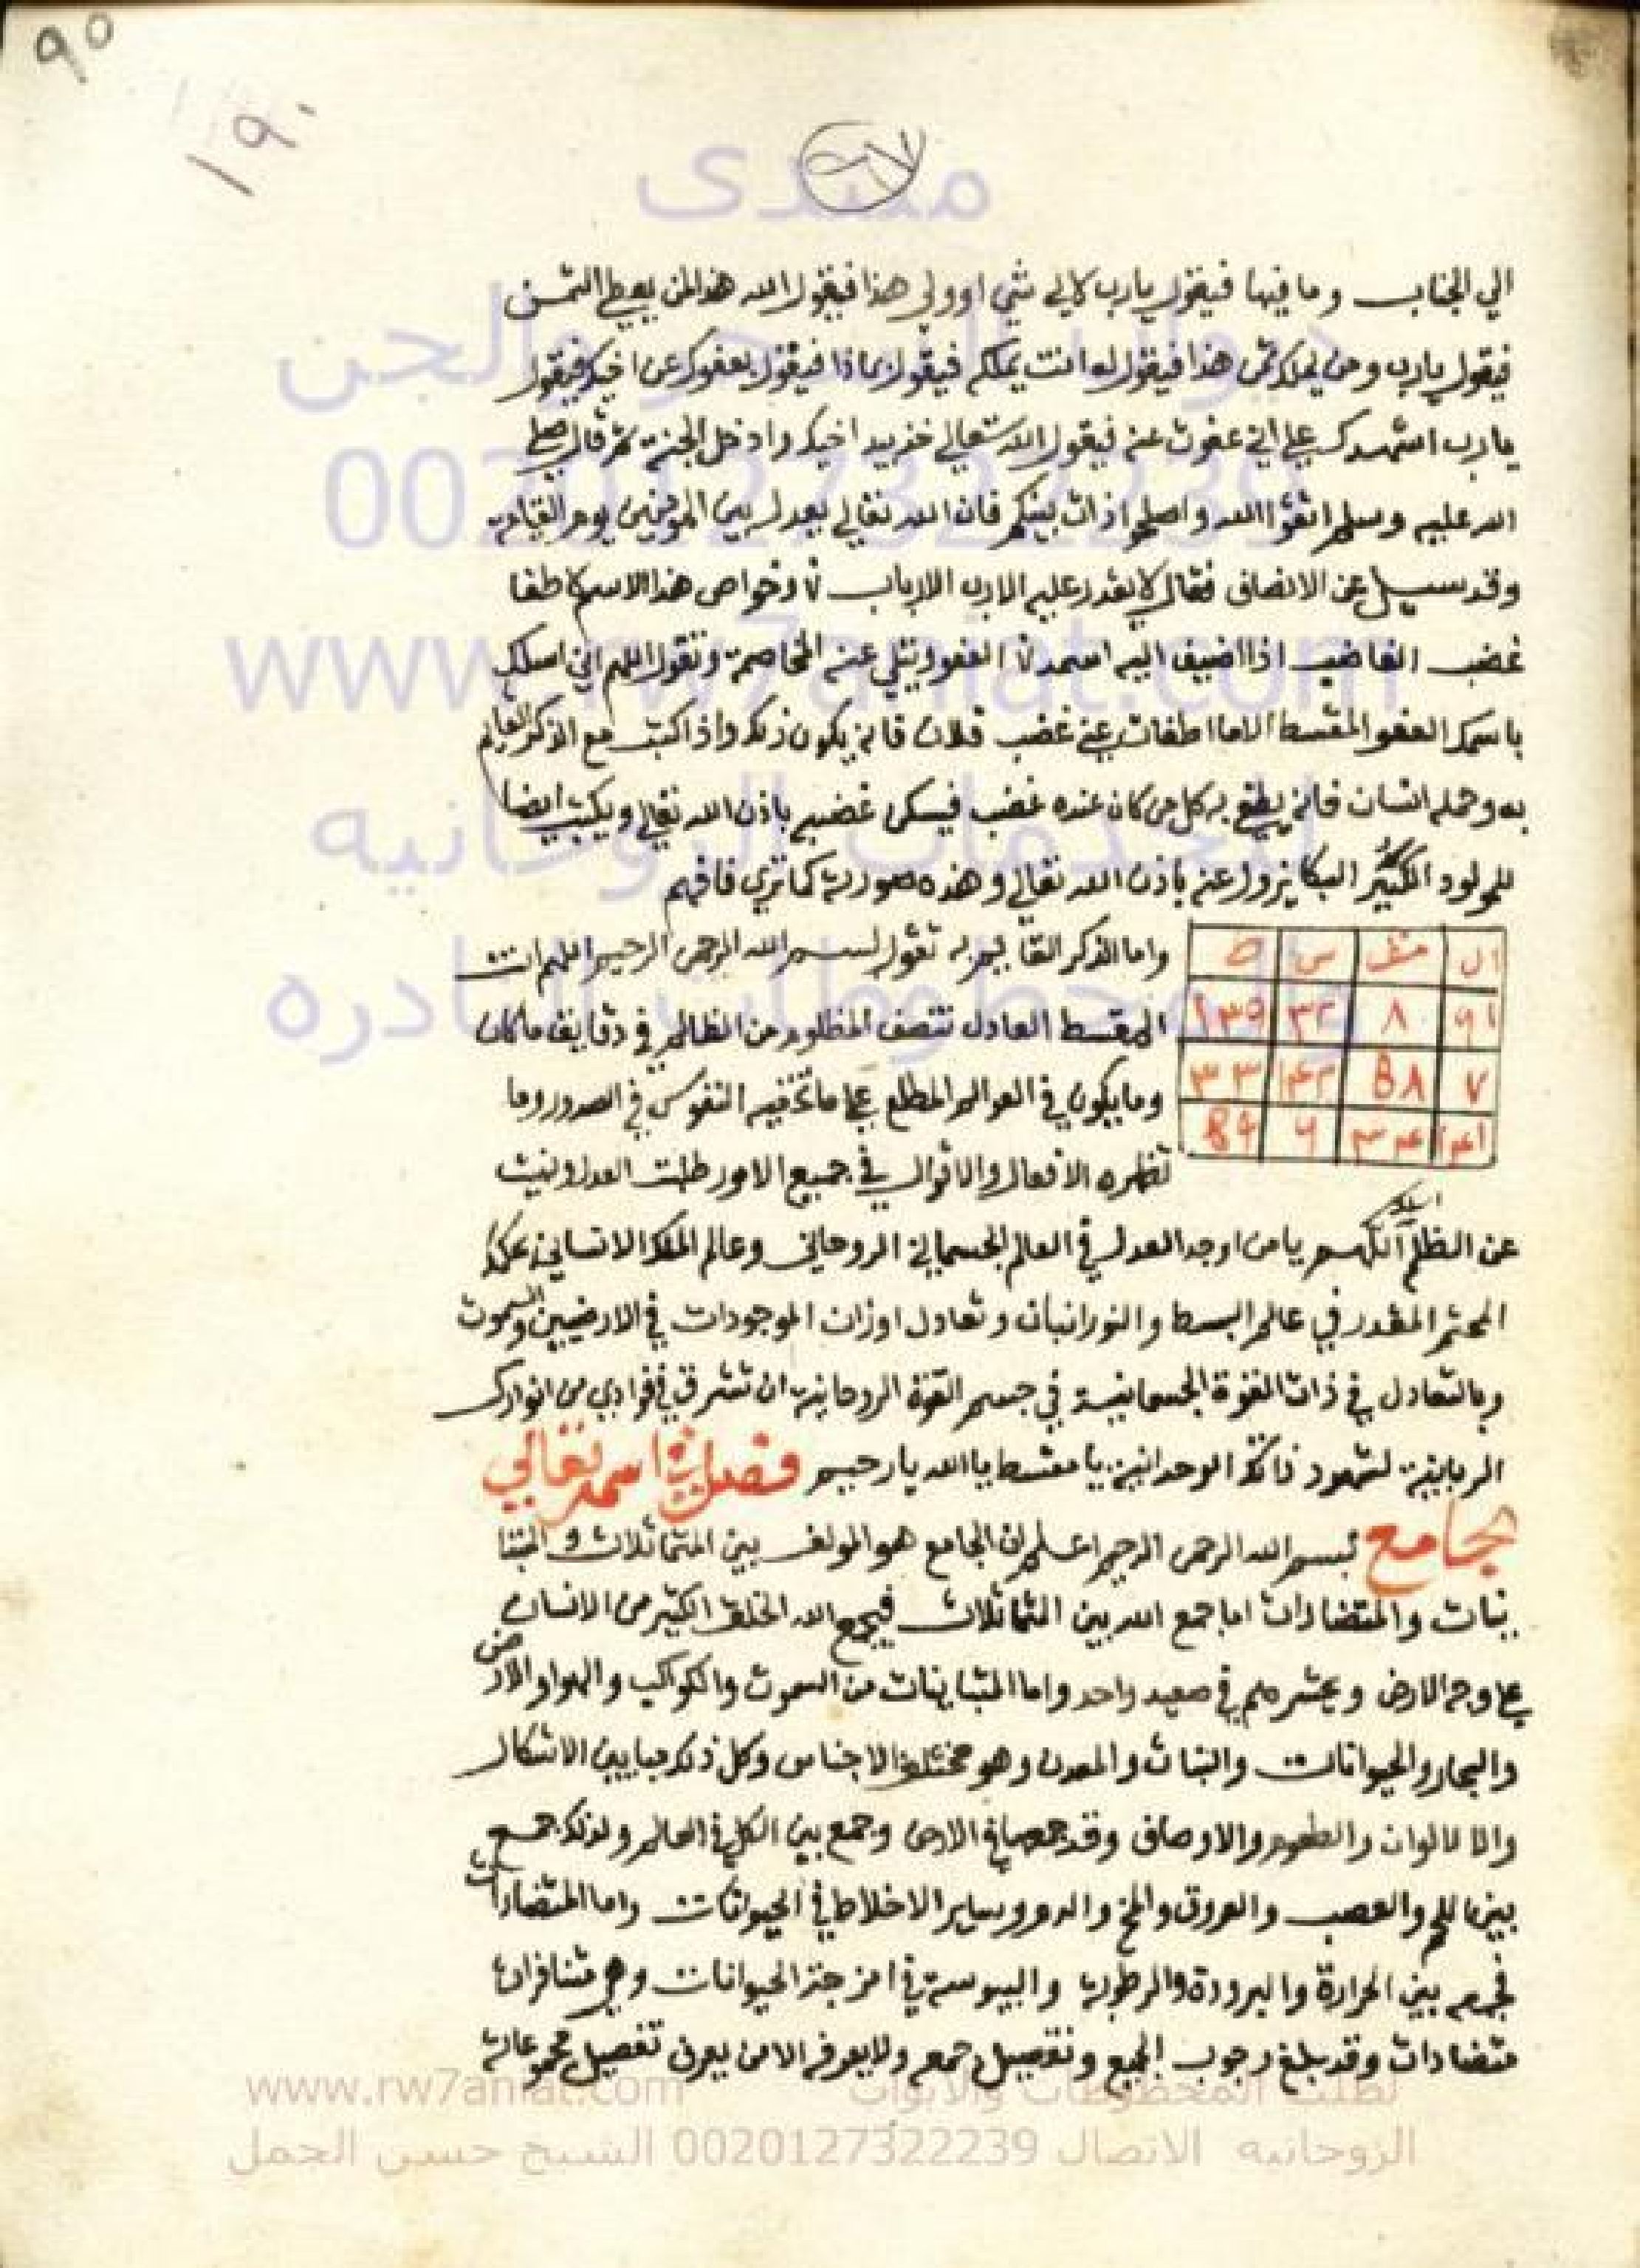 ٩٥
١٩٠
منتدى
الي الجناب وما فيها فيقول يارب لاي نبي اوولي هذا فيقول الله هذا لمن يعطي الثمن
فيقول يارب ومن يملك ثمن هذا فيقول له انت تملكه فيقول بماذا فيقول بعفوك عن اخيك فيقول
يارب اشهدك علي اني عفوت عنه فيقول الله تعالي خذ بيد اخيك وادخل الجنة ثم قال صلي
الله عليه وسلم اتقوا الله واصلحوا ذات بينكم فان الله تعالي يعدل بين المؤمنين يوم القيامة
وقد سيل عن الانصاف فقال لا يقدر عليه الارب الارباب ومن خواص هذا الاسم لاطفا
غضب الغاضب اذا اضيف اليه اسمه العفو وتتلي عند المخاصمة وتقول اللهم اني اسلك
باسمك العفو المقسط الاما اطفات عني غضب فلان فانه يكون ذلك واذا كتبت مع الذكر القايم
به وحمله انسان فانه يطيع به كل من كان عنده غضب فيسكن غضبه باذن الله تعالي ويكتب ايضا
للمولود الكثير البكا يزول عنه باذن الله تعالي وهذه صورته كما تري فافهم
ال مق س ط
واما الذكر القايم به تقول بسم الله الرحمن الرحيم اللهم انت
المقسط العادل تنتصف المظلوم من الظالم في دقايق ما كان
وما يكون في العوالم المطلع علي ما تخفيه النفوس في الصدور وما
تظهره الافعال والاقوال في جميع الامور طلبت العدل ونهيت
عن الظلم اسلك اللهم يامن اوجد العدل في العالم الجسماني الروحاني وعالم الملك الانساني بحكمك
المحتم المقدر في عالم البسط والنورانيات وتعادل اوزان الموجودات في الارضيين والسموت
وبالتعادل في ذات القوة الجسمانية في جسم القوة الروحانية ان تشرق في فوادي من انوارك
الربانية لشهود ذاتك الوحدانية يا مقسط يا الله يا رحيم فصل في اسمه تعالي
جامع بسم الله الرحمن الرحيم اعلم ان الجامع هو المولف بين المتماثلات والمتبا
ينات والمتضادات اما جمع الله بين المتماثلات فيجمع الله الخلق الكثير من الانسان
علي وجه الارض ويحشرهم في صعيد واحد واما المتباينات من السموت والكواكب والهوا والارض
والبحار والحيوانات والنبات والمعدن وهو مختلف الاجناس وكل ذلك مباين الاشكال
والالوان والطعوم والاوصاف وقد جمعها في الارض وجمع بين الكل في العالم ولذلك جمع
بين اللحم والعصب والعروق والمخ والدم وساير الاخلاط في الحيوانات واما المتضادات
فجمع بين الحرارة والبرودة والرطوبة واليبوسة في امزجة الحيوانات وهي متنافرات
متضادات وقد بلغ وجوب الجمع وتفصيل جمعه ولا يعرفه الا من يعرف تفصيل مجموعاته
0020127322239
www.rw7aniat.com
للخدمات الروحانيه
والمخطوطات النادره
www.rw7aniat.com لطلب المخطوطات والابواب
الروحانيه الاتصال 0020127322239 الشيخ حسن الجمل